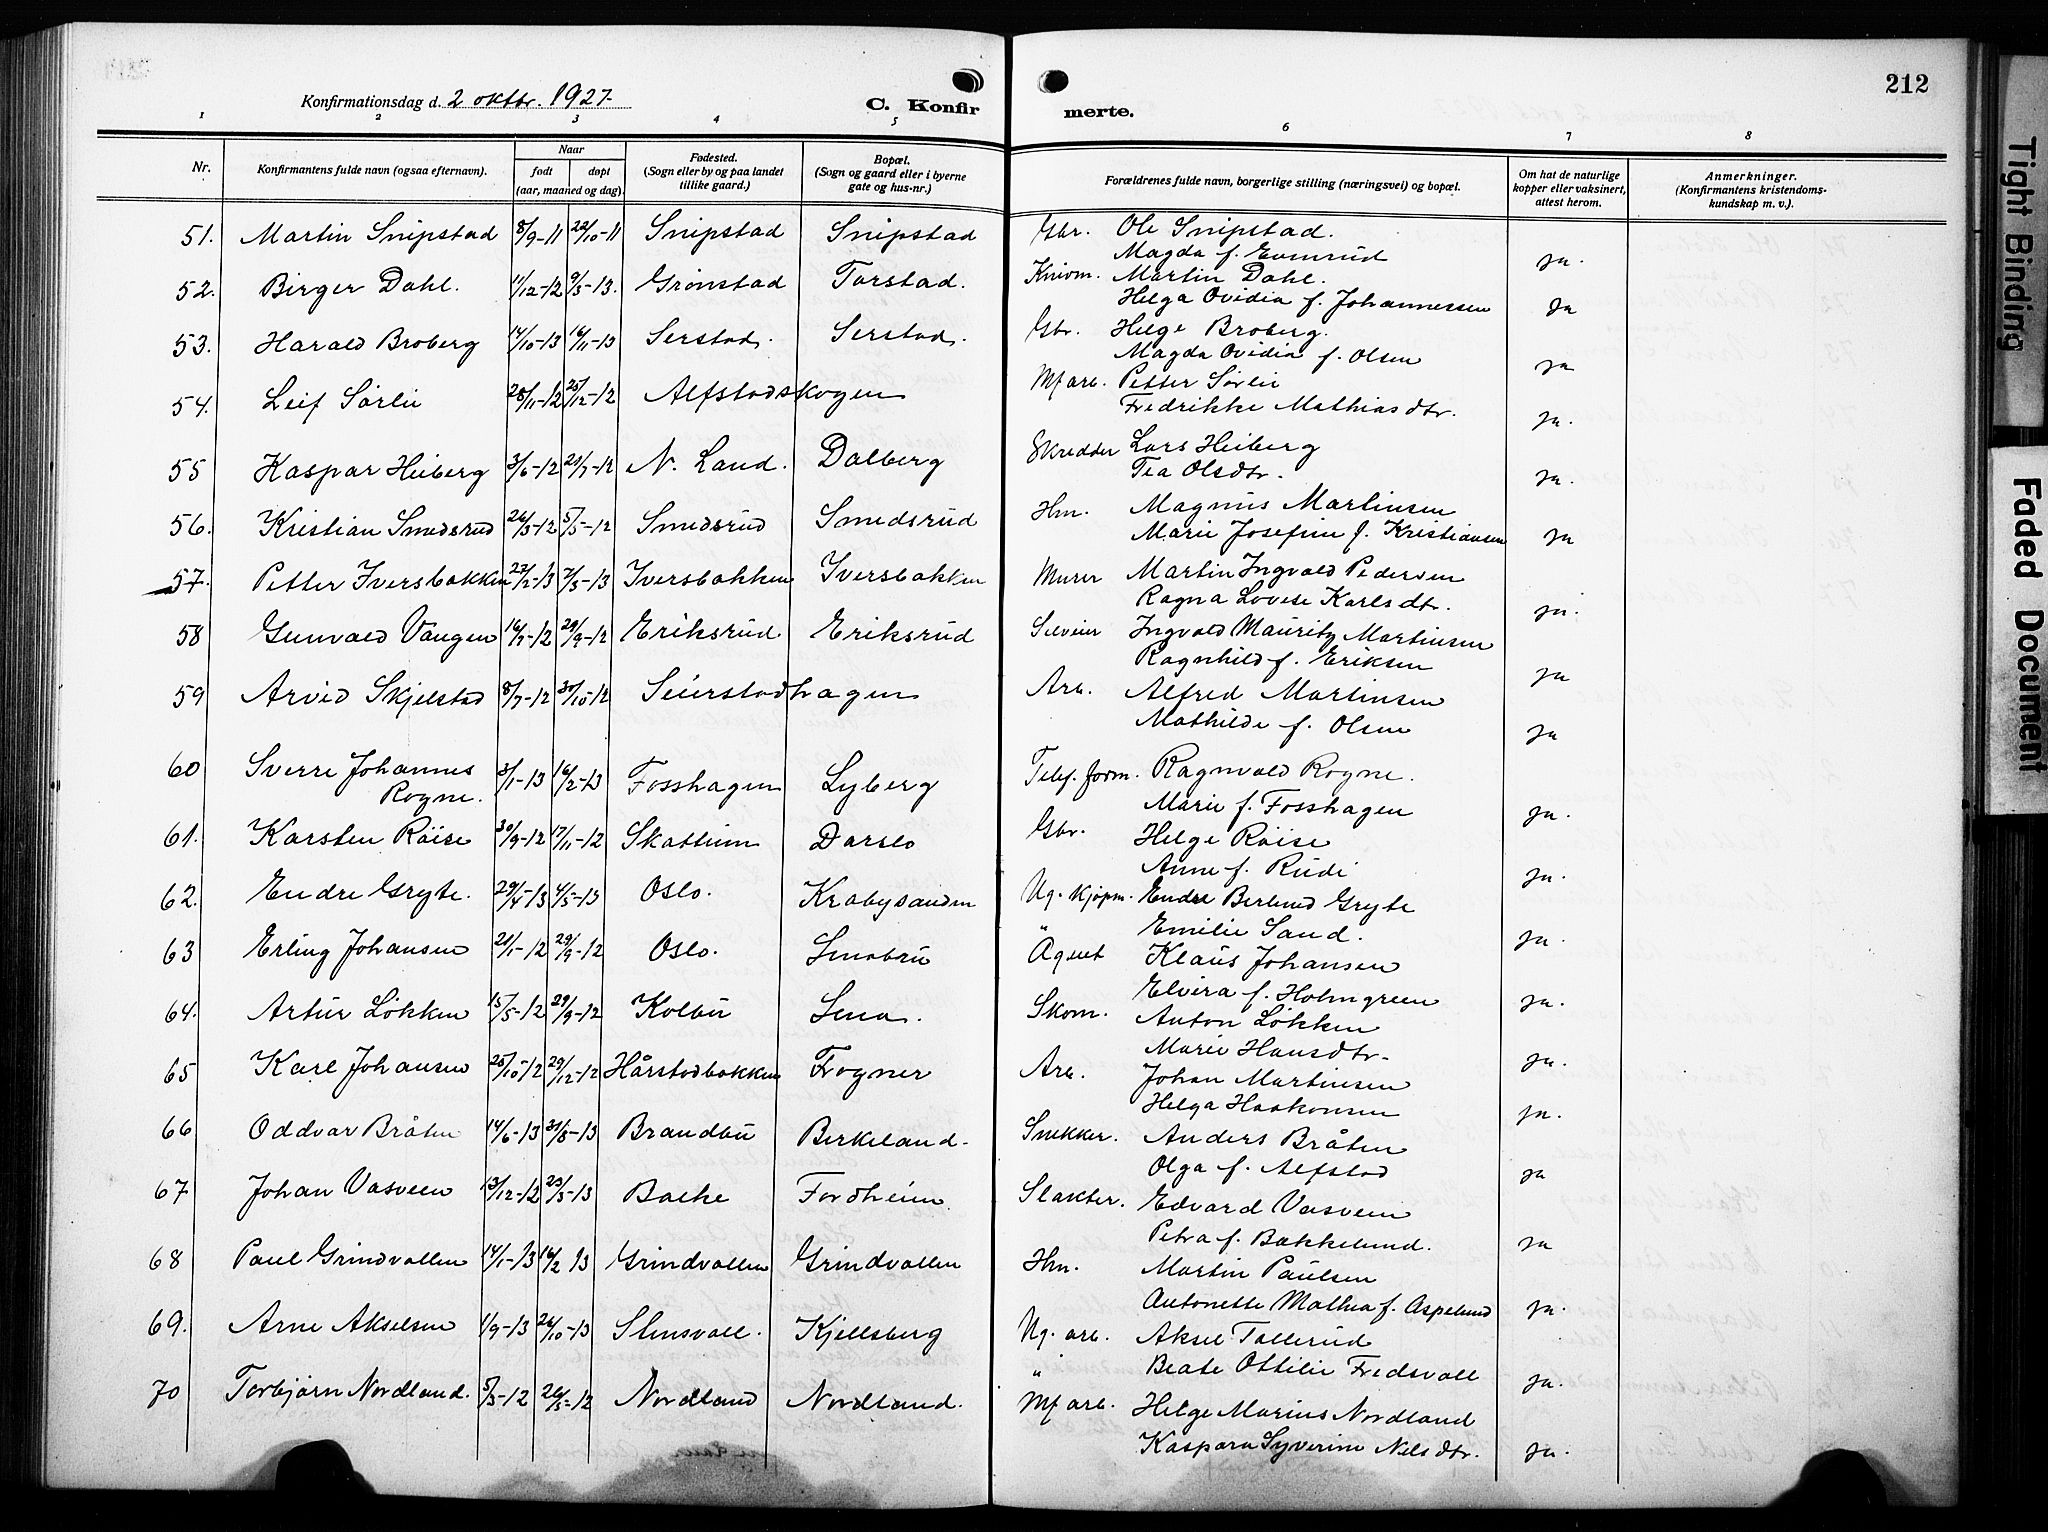 212
Konfirmationsdag d. 2 oktbr. 1927.
C. Konfir merte.
1 2 3 4 5 6 7 8
Nr. Konfirmantens fulde navn (ogsaa efternavn). Naar født døpt (aar, maaned og dag). Fødested. (Sogn eller by og paa landet tillike gaard.) Bopæl. (Sogn og gaard eller i byerne gate og hus-nr.) Forældrenes fulde navn, borgerlige stilling (næringsvei) og bopæl. Om hat de naturlige kopper eller vaksinert, attest herom. Anmerkninger. (Konfirmantens kristendomskundskap m. v.).
51. Martin Snipstad 8/9-11 22/10-11 Snipstad Snipstad Gbr. Ole Snipstad.
Magda f. Evenrud ja.
52. Birger Dahl. 11/12-12 9/3-13. Grønstad Torstad. Martin Dahl.
Helga Ovidia f. Johannessen ja
53. Harald Broberg 14/10-13 16/11-13 Serstad. Serstad. Gbr. Helge Broberg.
Magda Ovidia f. Olsen ja
54. Leif Sørlie 28/11-12 25/12-12 Alfstadskogen Mf arb. Petter Sørlie
Fredrikke Mathiasdtr. ja.
55 Kaspar Heiberg 3/6-12 21/7-12 N. Land. Dalberg Skredder Lars Heiberg
Tea Olsdtr. ja.
56. Kristian Smedsrud 26/3-12 5/5-12 Smedsrud Smedsrud Hm. Magnus Martinsen
Marie Josefine f. Kristiansen ja
57. Petter Iversbakken 22/2-13 7/3-13 Iversbakken Iversbakken Murer Martin Ingvald Pedersen
Ragna Lovise Karlsdtr. ja.
58 Gunvald Vangen 16/7-12 29/9-12 Eriksrud Eriksrud Sveiser Ingvald Mauritz Martinsen
Ragnhild f. Eriksen ja
59 Arvid Skjelstad 8/7-12 30/10-12 Seierstadhagen Arb. Alfred Martinsen
Mathilde f. Olsen ja
60 Sverre Johannes Rogne. 3/1-13 16/2-13 Fosshagen Lyberg Telef. form. Ragnvald Rogne.
Marie f. Fosshagen ja.
61. Karsten Røise 30/9-12 17/11-12 Skattum Darslo Gbr. Helge Røise
Anne f. Rudi ja.
62. Endre Gryte. 29/4-13 4/5-13 Oslo. Krabysanden Ug. Kjøpm. Endre Berlund Gryte
" Emilie Sand. ja.
63 Erling Johansen 21/1-12 29/9-12 Oslo. Lenabru Agent Klaus Johansen
Elvira f. Holmgreen ja.
64. Artur Løkken 15/5-12 29/9-12 Kolbu Lena. Skom. Anton Løkken
Marie Hansdtr. ja.
65 Karl Johansen 25/10-12 29/12-12 Hårstadbakken Frogner Arb. Johan Martinsen
Helga Haakonsen ja.
66 Oddvar Bråten 14/6-13 31/8-13 Brandbu Birkeland. Snekker. Anders Bråten
Olga f. Alfstad ja
67 Johan Vasveen 13/12-12 23/3-13 Balke Fordheim. Slakter. Edvard Vasveen
Petra f. Bakkelund. ja
68 Paul Grindvollen 14/1-13 16/2 13 Grindvollen Grindvollen Hm. Martin Paulsen
Antonette Mathea f. Aspelund ja.
69. Arne Akselsen 1/9-13 26/10-13 Stensvoll. Kjellsberg Ug. arb. Aksel Tollerud
" Beate Ottilie Fredsvoll ja.
70 Torbjørn Nordland. 5/3-12 26/5-12 Nordland Nordland. Mf arb. Helge Marius Nordland
Kaspara Syverine Nilsdtr. ja.
Tight Binding
Faded Document